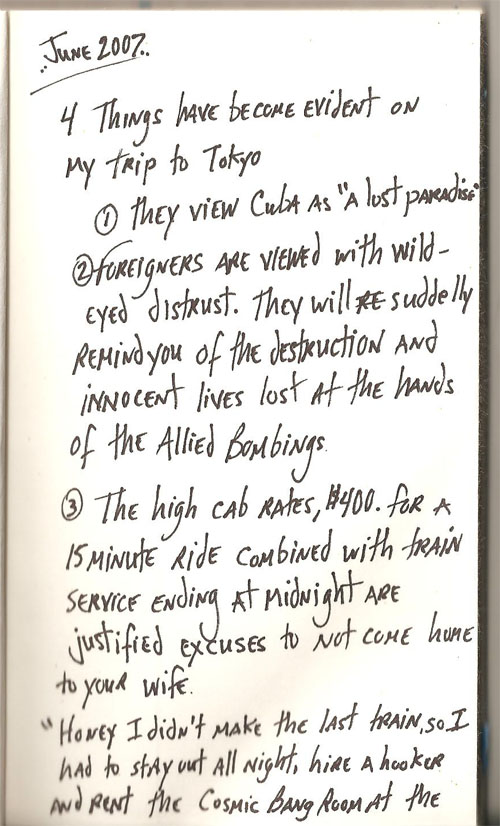 June 2007.
4 Things have become evident on
my trip to Tokyo
① they view Cuba as "a lost paradise"
② foreigners are viewed with wild-
eyed distrust. They will suddelly
remind you of the destruction and
innocent lives lost at the hands
of the Allied Bombings.
③ The high cab rates, $400. for a
15 minute ride combined with train
service ending at midnight are
justified excuses to not come home
to your wife.
"Honey I didn't make the last train, so I
had to stay out all night, hire a hooker
and rent the Cosmic Bang Room at the